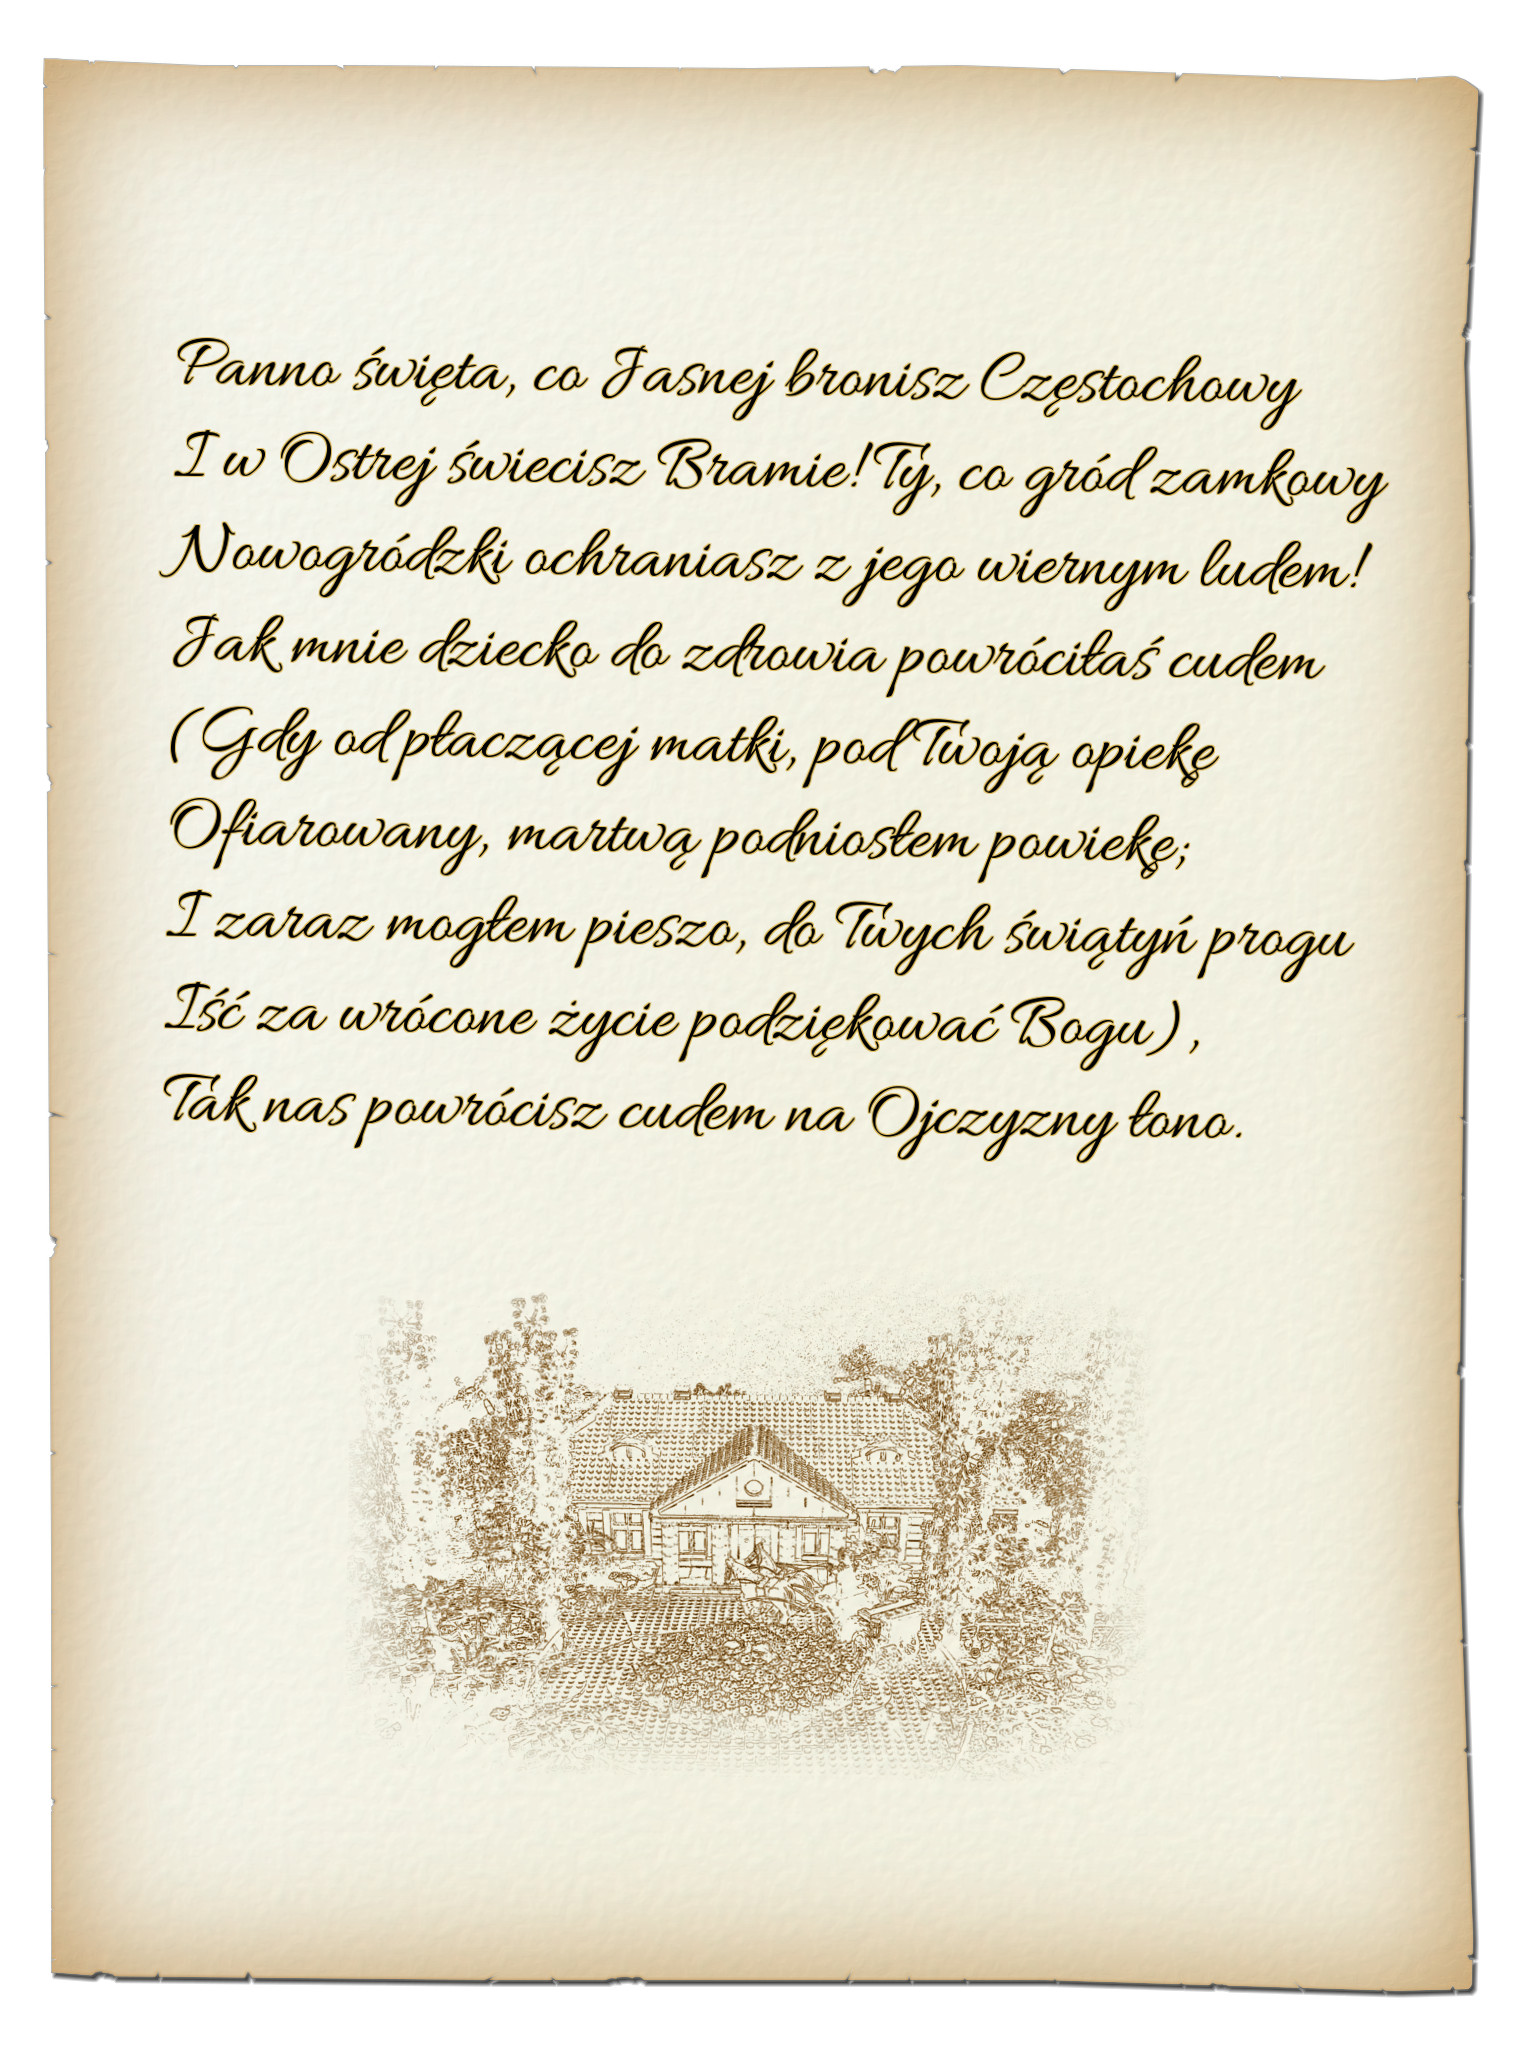 Panno święta, co Jasnej bronisz Częstochowy
I w Ostrej świecisz Bramie! Ty, co gród zamkowy
Nowogródzki ochraniasz z jego wiernym ludem!
Jak mnie dziecko do zdrowia powróciłaś cudem
(Gdy od płaczącej matki, pod Twoją opiekę
Ofiarowany, martwą podniosłem powiekę;
I zaraz mogłem pieszo, do Twych świątyń progu
Iść za wrócone życie podziękować Bogu),
Tak nas powrócisz cudem na Ojczyzny łono.